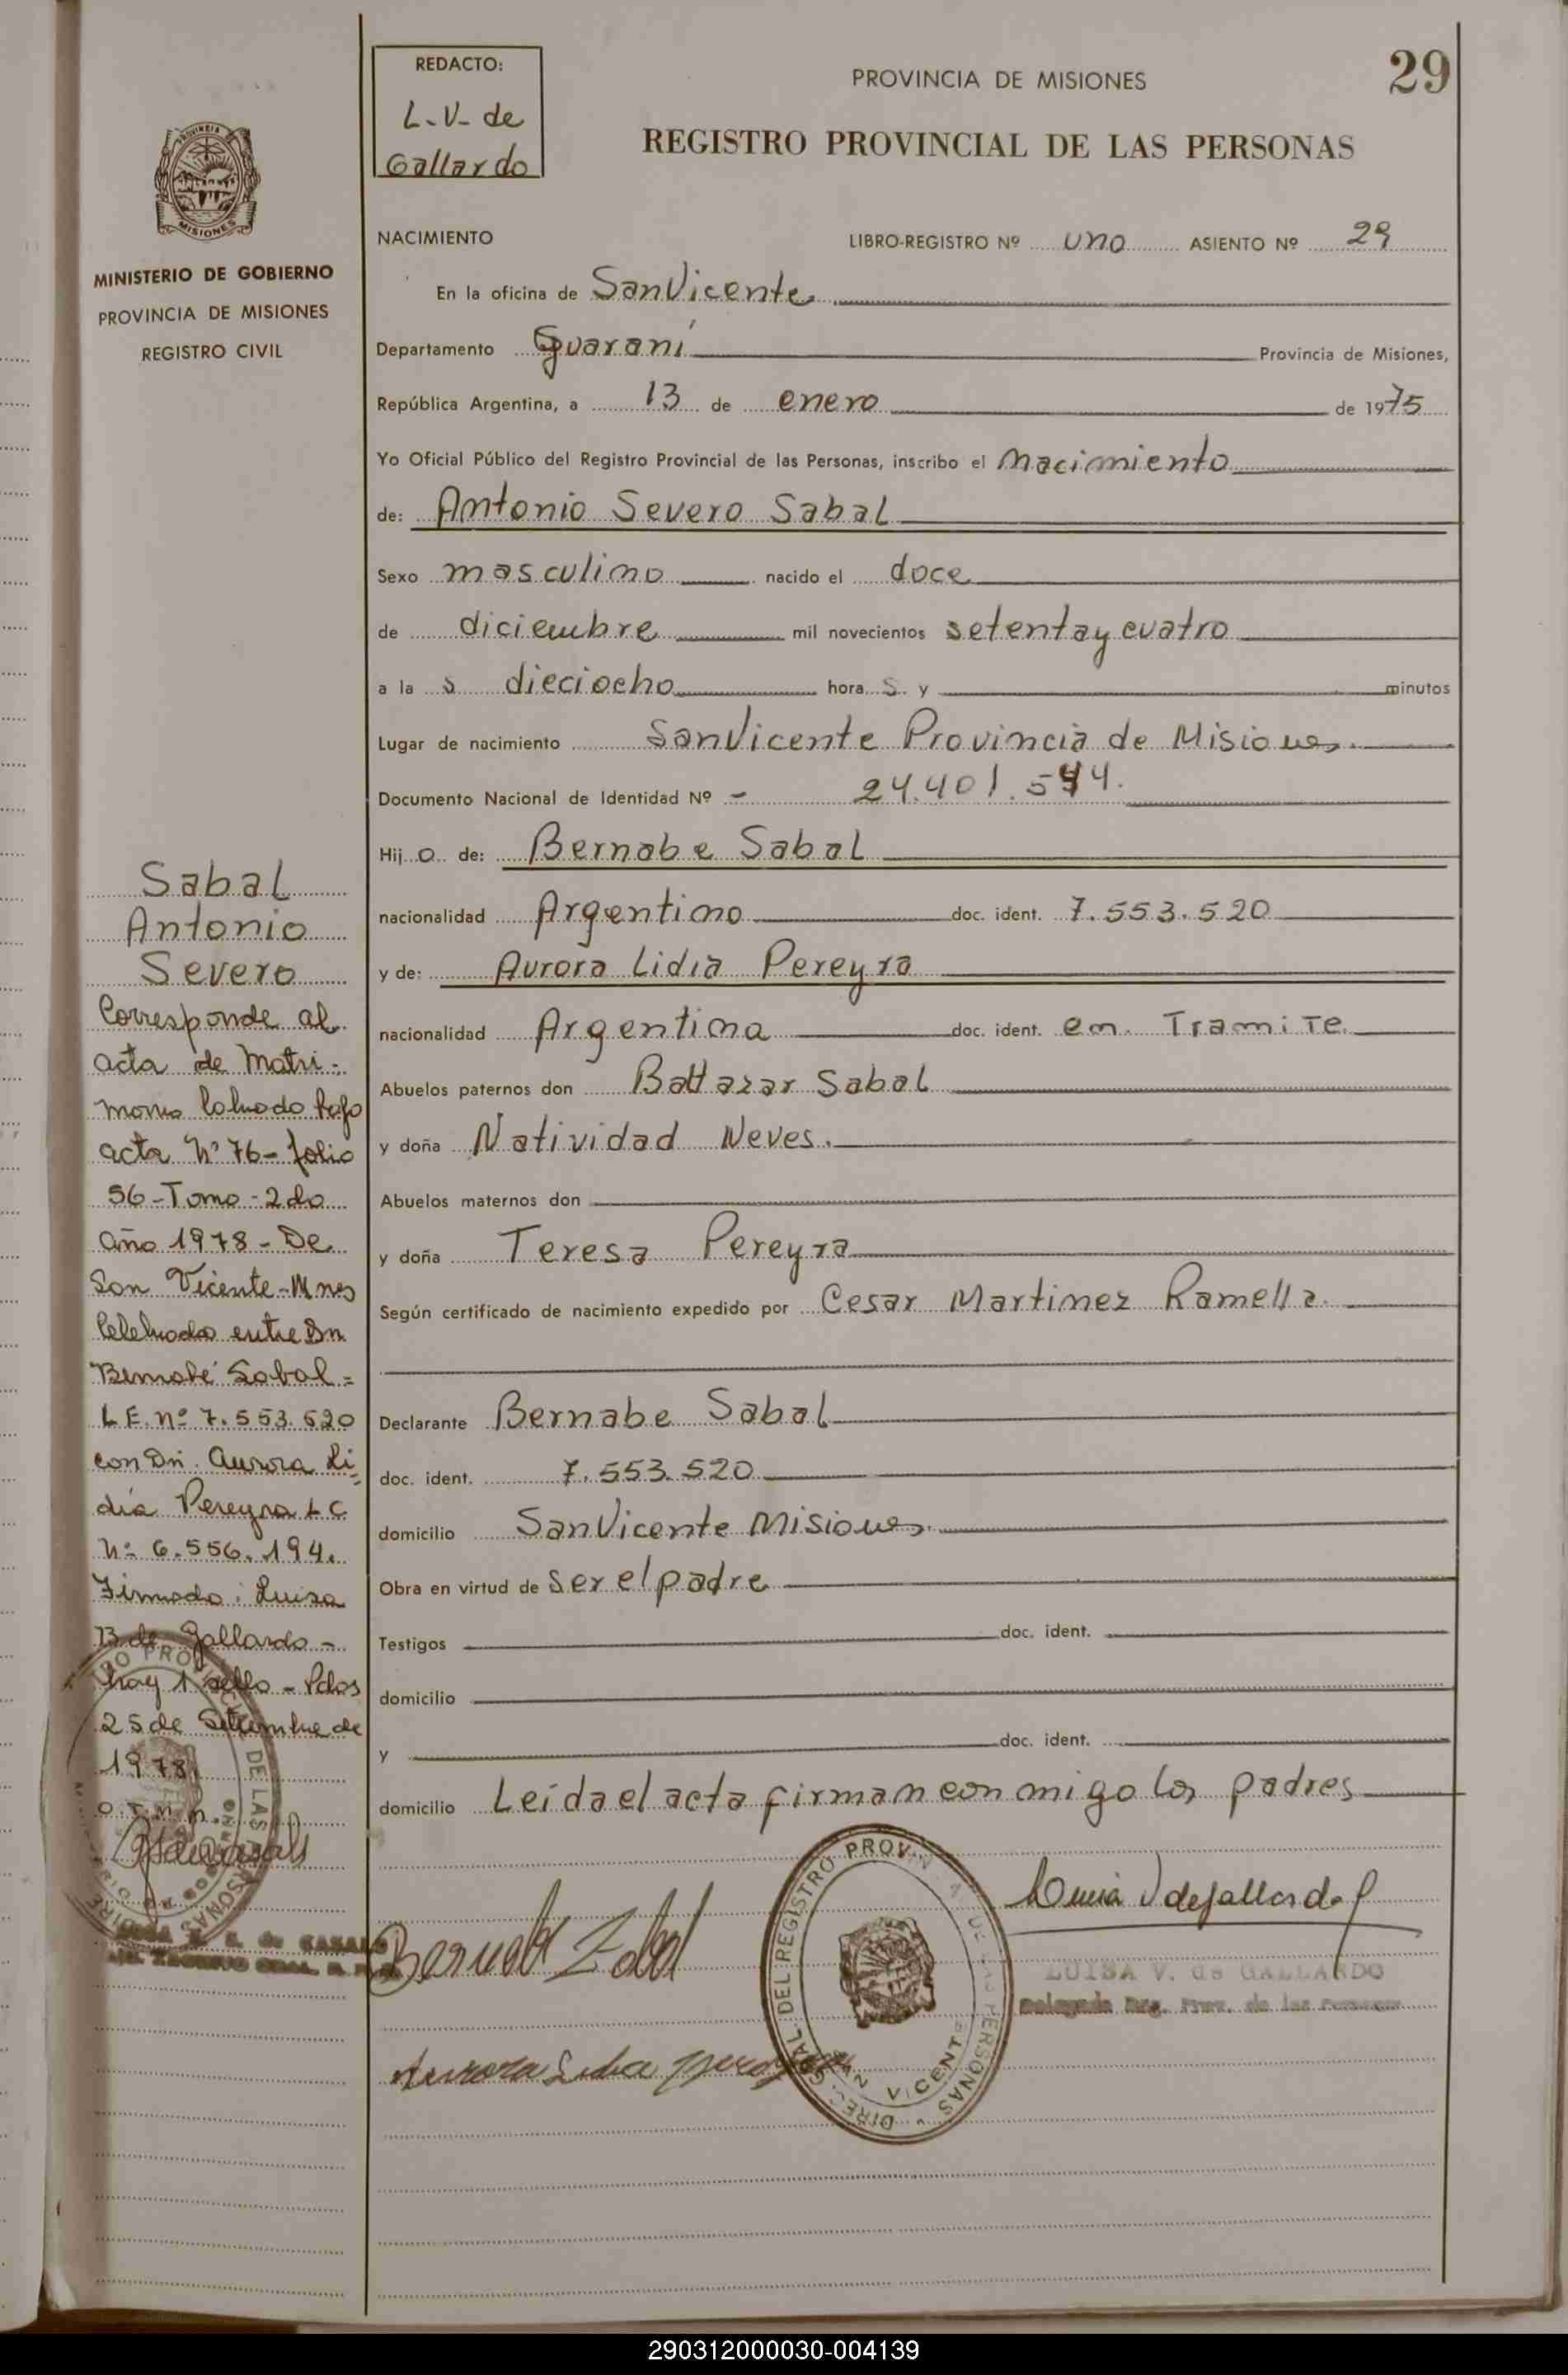 29
REDACTO:
L-V- de
Gallardo
PROVINCIA DE MISIONES
REGISTRO PROVINCIAL DE LAS PERSONAS
MISIONES
MINISTERIO DE GOBIERNO
PROVINCIA DE MISIONES
REGISTRO CIVIL
NACIMIENTO
LIBRO-REGISTRO Nº uno ASIENTO Nº 29
En la oficina de San Vicente
Departamento Guaraní Provincia de Misiones,
República Argentina, a 13 de enero de 1975
Yo Oficial Público del Registro Provincial de las Personas, inscribo el nacimiento
de: Antonio Severo Sabal
Sexo masculino nacido el doce
de diciembre mil novecientos setenta y cuatro
a la s dieciocho hora s y minutos
Lugar de nacimiento San Vicente Provincia de Misiones.
Documento Nacional de Identidad Nº - 24.401.544.
Hij o de: Bernabe Sabal
nacionalidad Argentino doc. ident. 7.553.520
y de: Aurora Lidia Pereyra
nacionalidad Argentina doc. ident. en Tramite
Abuelos paternos don Baltazar Sabal
y doña Natividad Neves.
Abuelos maternos don
y doña Teresa Pereyra
Según certificado de nacimiento expedido por Cesar Martinez Ramella.
Declarante Bernabe Sabal
doc. ident. 7.553.520
domicilio San Vicente Misiones.
Obra en virtud de ser el padre
Testigos doc. ident.
domicilio
y doc. ident.
domicilio Leída el acta firman con migo los padres
Sabal
Antonio
Severo
Corresponde al
acta de Matri-
monio labrado bajo
acta Nº 76- folio
56-Tomo-2do
año 1978- De
San Vicente-Mnes
Celebrado entre Dn
Bernabé Sabal=
L.E. nº 7.553.520
con Dñ. Aurora Li=
dia Pereyra L C
Nº 6.556.194.
Firmado: Luisa
B de Gallardo-
hay 1 sello - Pdos
25 de Setiembre de
1978
Bernabe Zabal
Aurora Lidia Pereyra
Luisa V de Gallardo
LUISA V. de GALLARDO
Delegada Reg. Prov. de las Personas
DIREC. GRAL. DEL REGISTRO PROVINCIAL DE LAS PERSONAS
SAN VICENTE
290312000030-004139